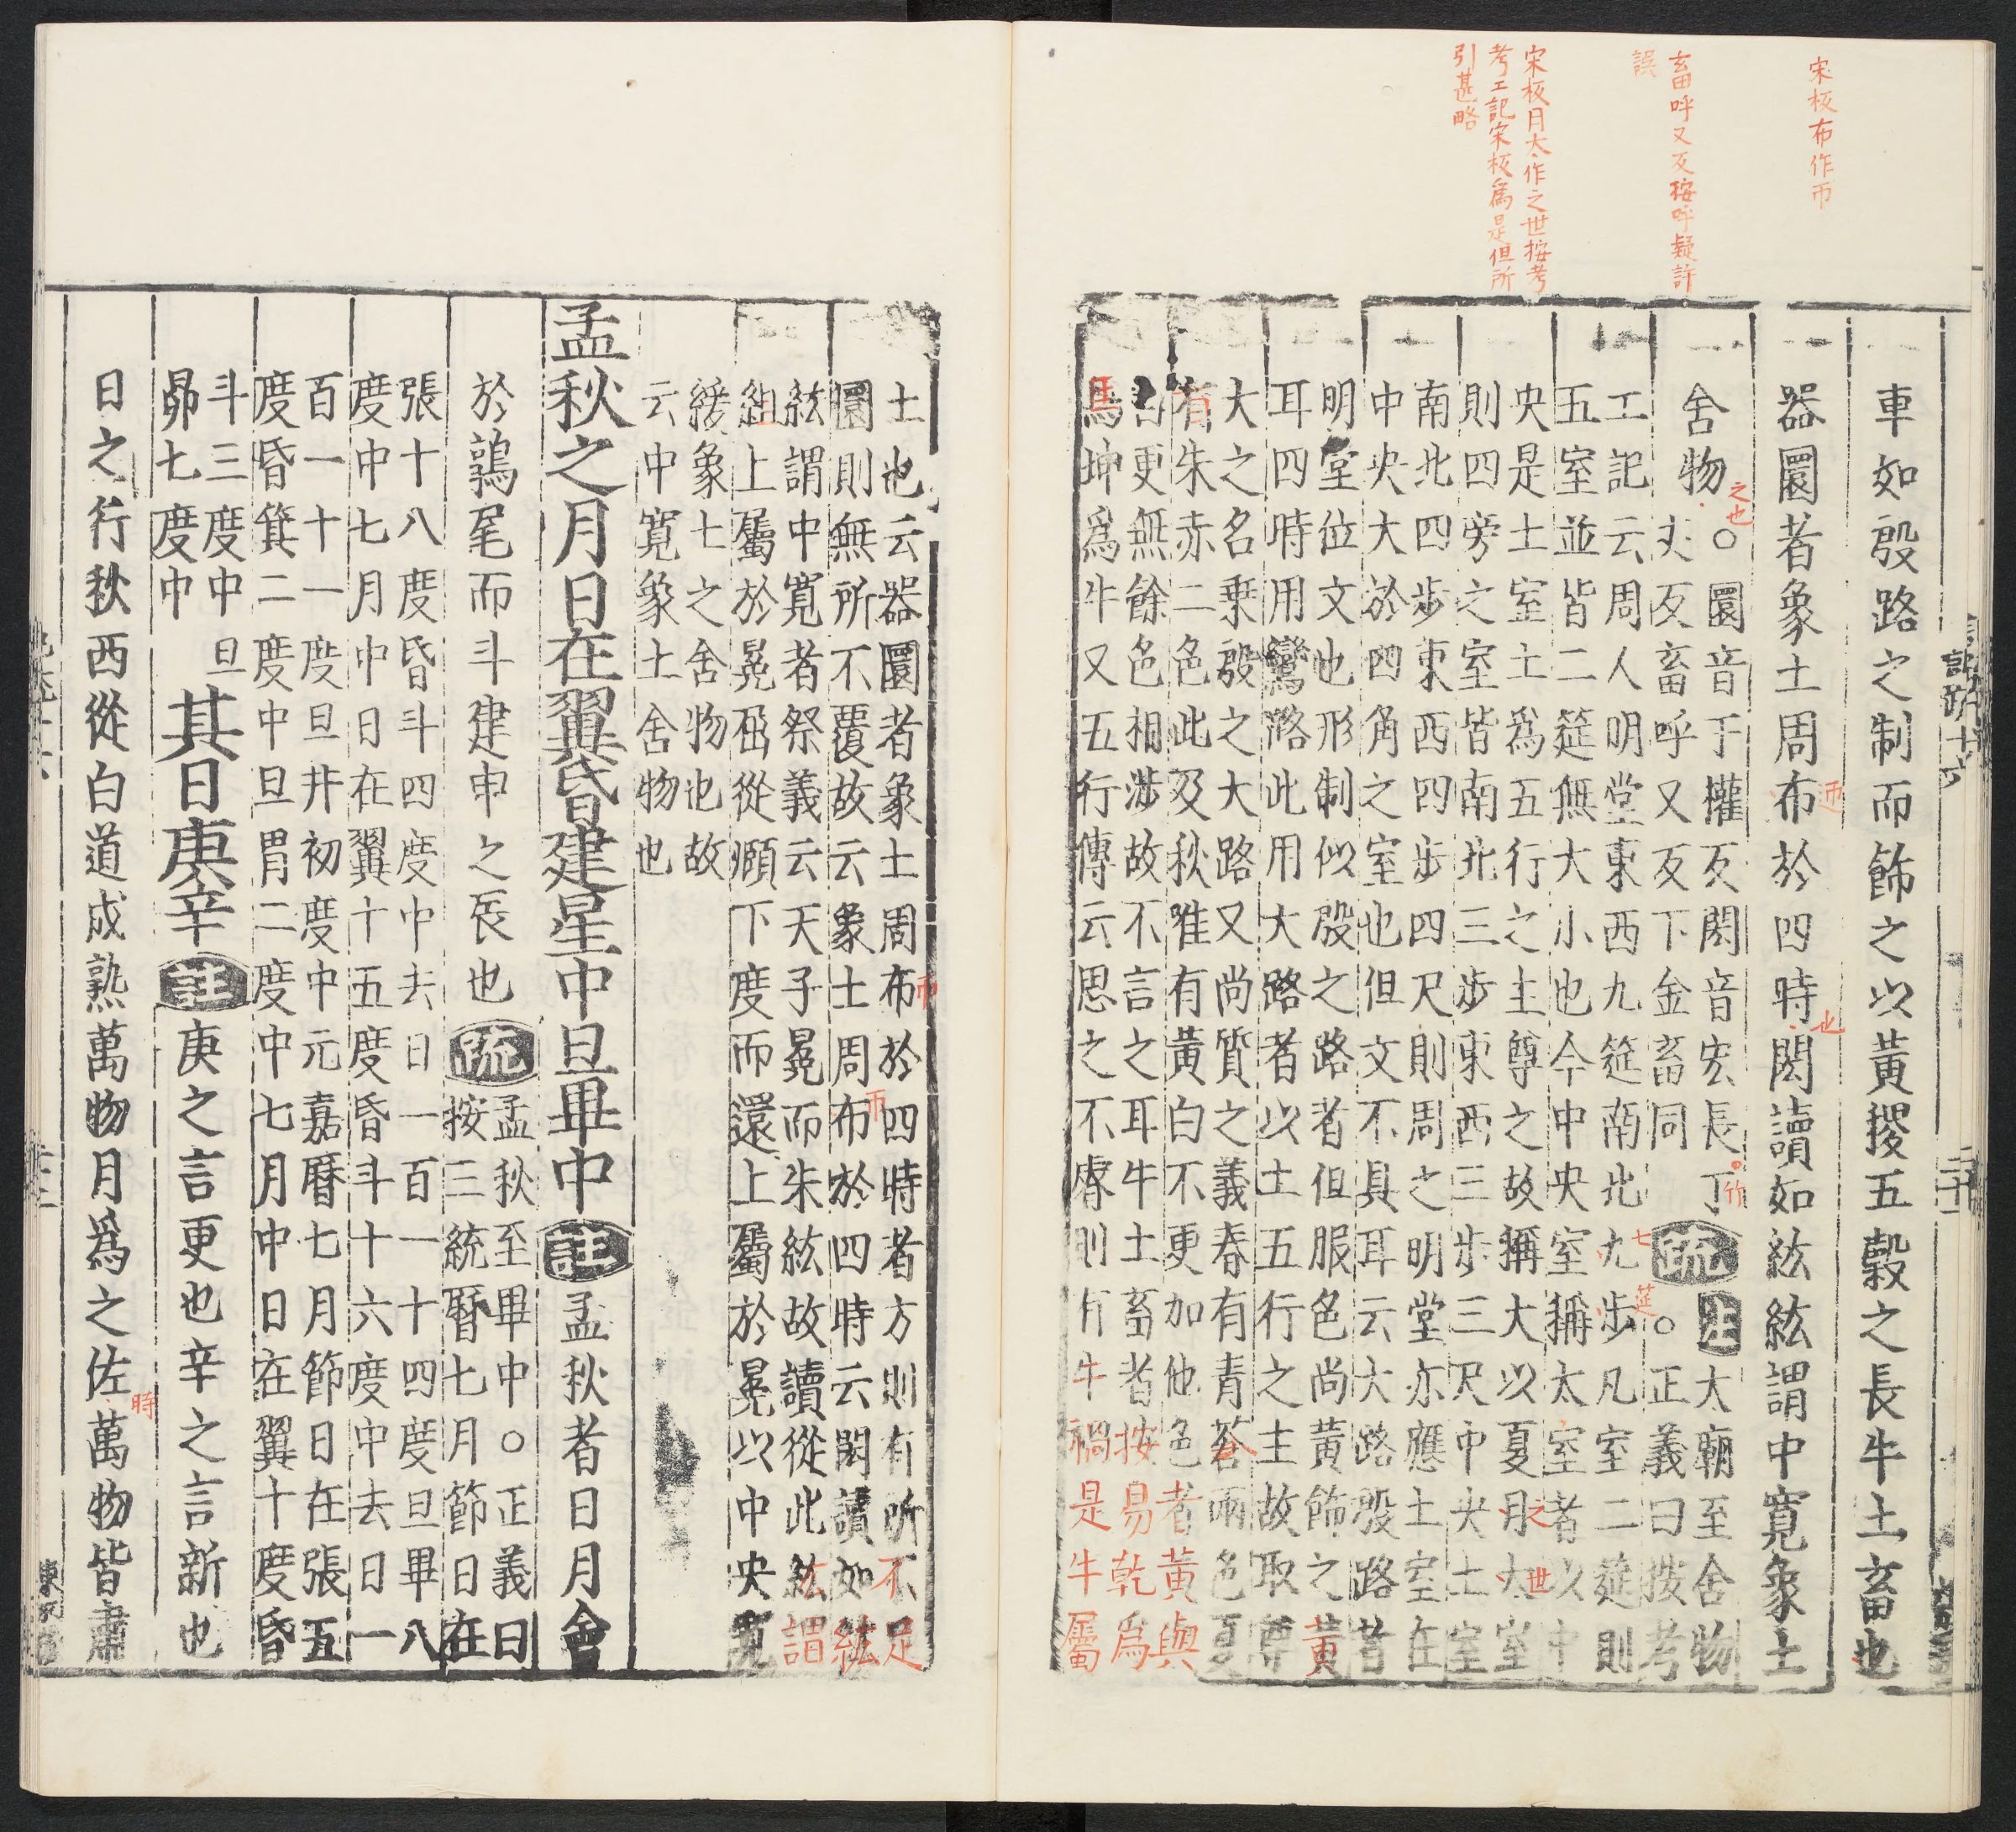 宋板布作帀
畜呼又反按呼疑許
誤
宋板月太作之世按考
考工記宋板為是但所
引甚略
車如殷路之制而飾之以黃稷五穀之長牛土畜也
器圜者象土周布於四時閎讀如紘紘謂中寬象土
舍物○圜音于權反閎音宏長丁
丈反畜呼又反下金畜同
疏註大廟至舍物
○正義曰按考
工記云周人明堂東西九筵南北九步凡室二筵則
五室並皆二筵無大小也今中央室稱太室者以中
央是土室土為五行之主尊之故稱大以夏月太室
則四旁之室皆南北三步東西三步三尺中央土室
南北四步東西四步四尺則周之明堂亦應土室在
中央大於四角之室也但文不具耳云大路殷路者
明堂位文也形制似殷之路者但服色尚黃飾之黃
耳四時用鸞路此用大路者以土五行之主故取尊
大之名乗殷之大路又尚質之義春有青蒼兩色夏
有朱赤二色此及秋唯有黃白不更加他色者黃與
白更無餘色相渉故不言之耳牛土畜者按易乾為
馬坤為牛又五行傳云思之不睿則有牛禍是牛屬
土也云器圜者象土周布於四時者方則有所不足
圜則無所不覆故云象土周布於四時云閎讀如紘
紘謂中寛者祭義云天子冕而朱紘故讀從此紘謂
組上屬於冕屈從頤下度而還上屬於冕以中央寬
緩象七之舍物也故
云中寬象土舍物也
孟秋之月日在翼昏建星中旦畢中註孟秋者日月會
於鶉尾而斗建申之辰也疏孟秋至畢中○正義曰
按三統曆七月節日在
張十八度昏斗四度中去日一百一十四度旦畢八
度中七月中日在翼十五度昏斗十六度中去日一
百一十一度旦井初度中元嘉曆七月節日在張五
度昏箕二度中旦胃二度中七月中日在翼十度昏
斗三度中旦
昴七度中
其日庚辛註庚之言更也辛之言新也
日之行秋西從白道成熟萬物月為之佐萬物皆肅